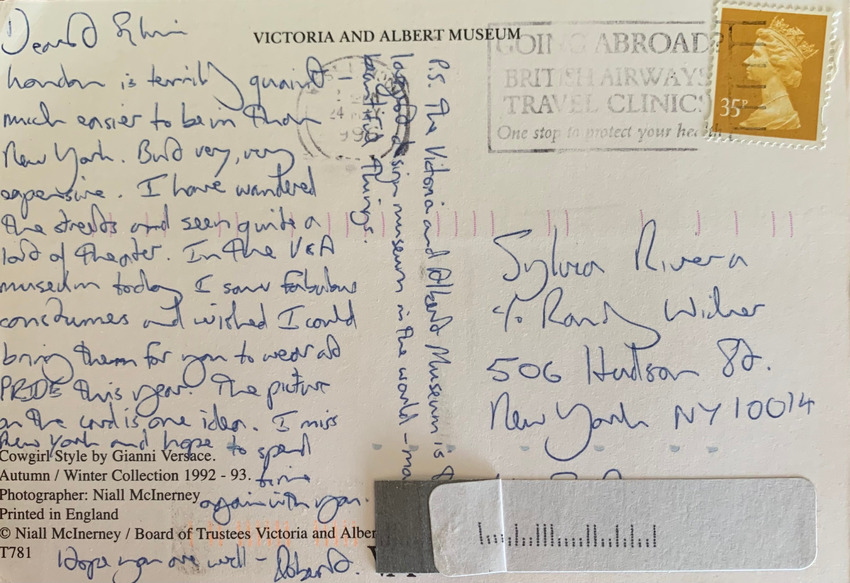 VICTORIA AND ALBERT MUSEUM
Dearest Sylvia
London is terribly quaint –
much easier to be in than
New York. But very, very
expensive. I have wandered
the streets and seen quite a
lot of theater. In the V&A
museum today I saw fabulous
constumes and wished I could
bring them for you to wear at
PRIDE this year. The picture
on the card is one idea. I miss
New York and hope to spend
time
again with you.
Hope you are well – Robert.
P.S. The Victoria and Albert Museum is the
largest design museum in the world – many
beautiful things.
Cowgirl Style by Gianni Versace.
Autumn / Winter Collection 1992 - 93.
Photographer: Niall McInerney
Printed in England
© Niall McInerney / Board of Trustees Victoria and Alber
T781
GOING ABROAD?
BRITISH AIRWAYS
TRAVEL CLINICS
One stop to protect your health
35P
Sylvia Rivera
c/o Randy Wicker
506 Hudson St.
New York NY 10014